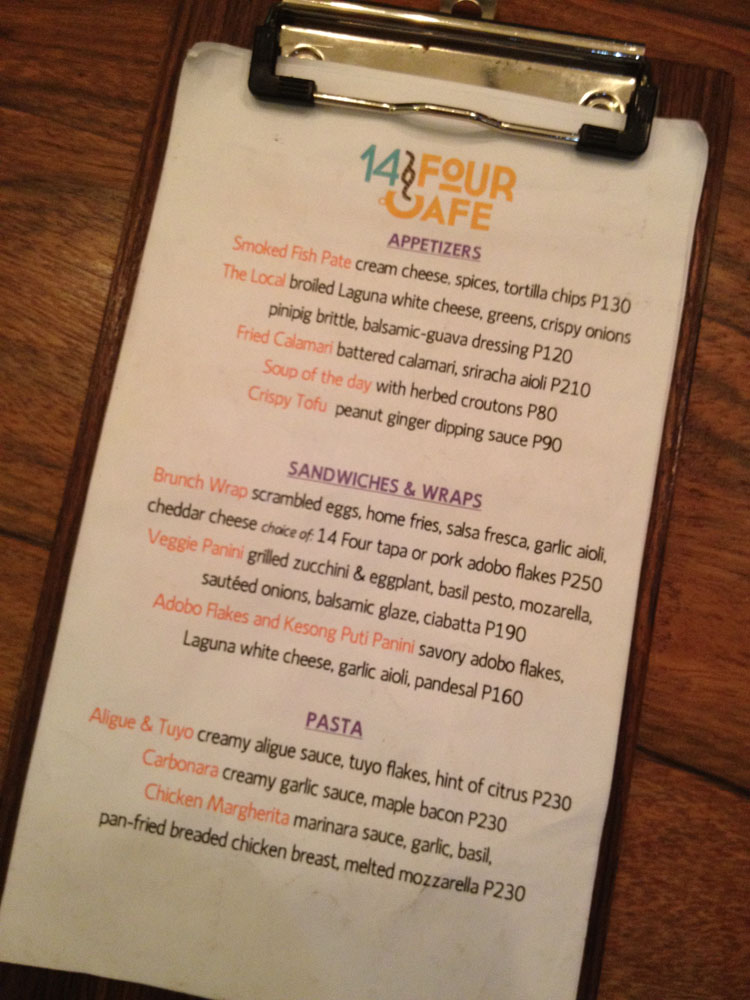 14 FOUR
CAFE
APPETIZERS
Smoked Fish Pate cream cheese, spices, tortilla chips P130
The Local broiled Laguna white cheese, greens, crispy onions
pinipig brittle, balsamic-guava dressing P120
Fried Calamari battered calamari, sriracha aioli P210
Soup of the day with herbed croutons P80
Crispy Tofu peanut ginger dipping sauce P90
SANDWICHES & WRAPS
Brunch Wrap scrambled eggs, home fries, salsa fresca, garlic aioli,
cheddar cheese choice of: 14 Four tapa or pork adobo flakes P250
Veggie Panini grilled zucchini & eggplant, basil pesto, mozarella,
sautéed onions, balsamic glaze, ciabatta P190
Adobo Flakes and Kesong Puti Panini savory adobo flakes,
Laguna white cheese, garlic aioli, pandesal P160
PASTA
Aligue & Tuyo creamy aligue sauce, tuyo flakes, hint of citrus P230
Carbonara creamy garlic sauce, maple bacon P230
Chicken Margherita marinara sauce, garlic, basil,
pan-fried breaded chicken breast, melted mozzarella P230